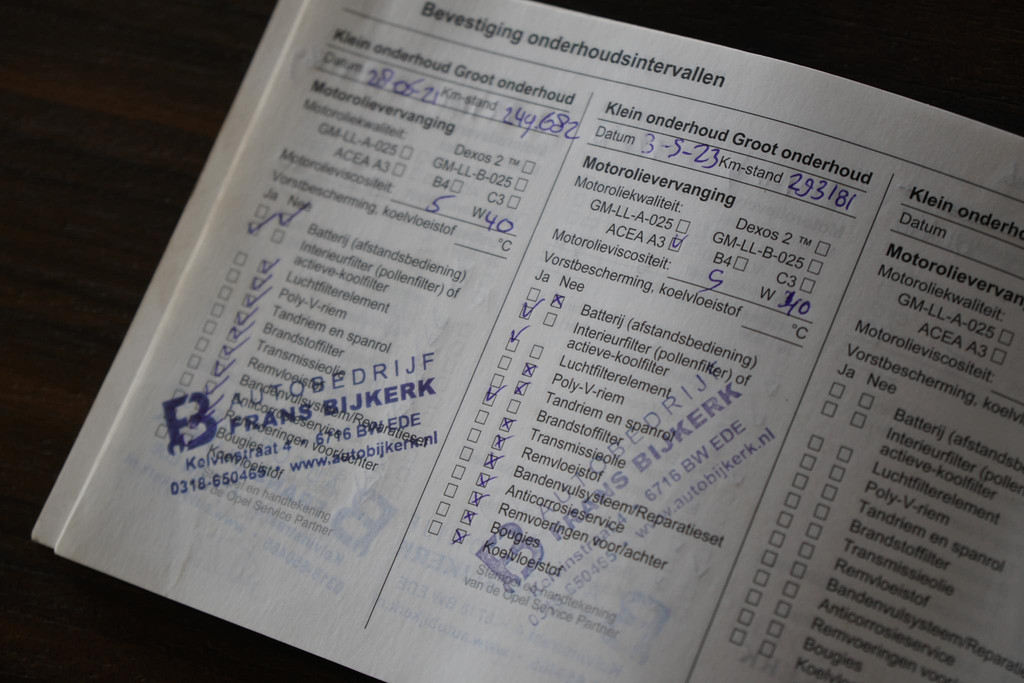 Bevestiging onderhoudsintervallen
Klein onderhoud Groot onderhoud
Datum 28-05-21 Km-stand 249,682
Motorolievervanging
Motoroliekwaliteit: Dexos 2 ™
GM-LL-A-025 GM-LL-B-025
ACEA A3 B4 C3
Motorolieviscositeit: 5 W 40
Vorstbescherming, koelvloeistof °C
Ja Nee
Batterij (afstandsbediening)
Interieurfilter (pollenfilter) of
actieve-koolfilter
Luchtfilterelement
Poly-V-riem
Tandriem en spanrol
Brandstoffilter
Transmissieolie
Remvloeistof
Bandenvulsysteem/Reparatieset
Anticorrosieservice
Remvoeringen voor/achter
Bougies
Koelvloeistof
AUTOBEDRIJF
FRANS BIJKERK
Kelvinstraat 4 - 6716 BW EDE
0318-650465 www.autobijkerk.nl
en handtekening
van de Opel Service Partner
Klein onderhoud Groot onderhoud
Datum 3-5-23 Km-stand 293181
Motorolievervanging
Motoroliekwaliteit: Dexos 2 ™
GM-LL-A-025 GM-LL-B-025
ACEA A3 B4 C3
Motorolieviscositeit: 5 W 40
Vorstbescherming, koelvloeistof °C
Ja Nee
Batterij (afstandsbediening)
Interieurfilter (pollenfilter) of
actieve-koolfilter
Luchtfilterelement
Poly-V-riem
Tandriem en spanrol
Brandstoffilter
Transmissieolie
Remvloeistof
Bandenvulsysteem/Reparatieset
Anticorrosieservice
Remvoeringen voor/achter
Bougies
Koelvloeistof
Stempel en handtekening
van de Opel Service Partner
AUTOBEDRIJF
FRANS BIJKERK
6716 BW EDE
www.autobijkerk.nl
Klein onderho
Datum
Motorolievervan
Motoroliekwaliteit:
GM-LL-A-025
ACEA A3
Motorolieviscositeit:
Vorstbescherming, koelv
Ja Nee
Batterij (afstandsb
Interieurfilter
actieve-koolfilter
Luchtfilterelement
Poly-V-riem
Tandriem en spanrol
Brandstoffilter
Transmissieolie
Remvloeistof
Bandenvulsysteem/Repara
Anticorrosieservice
Remvoeringen voor
Bougies
Koelv